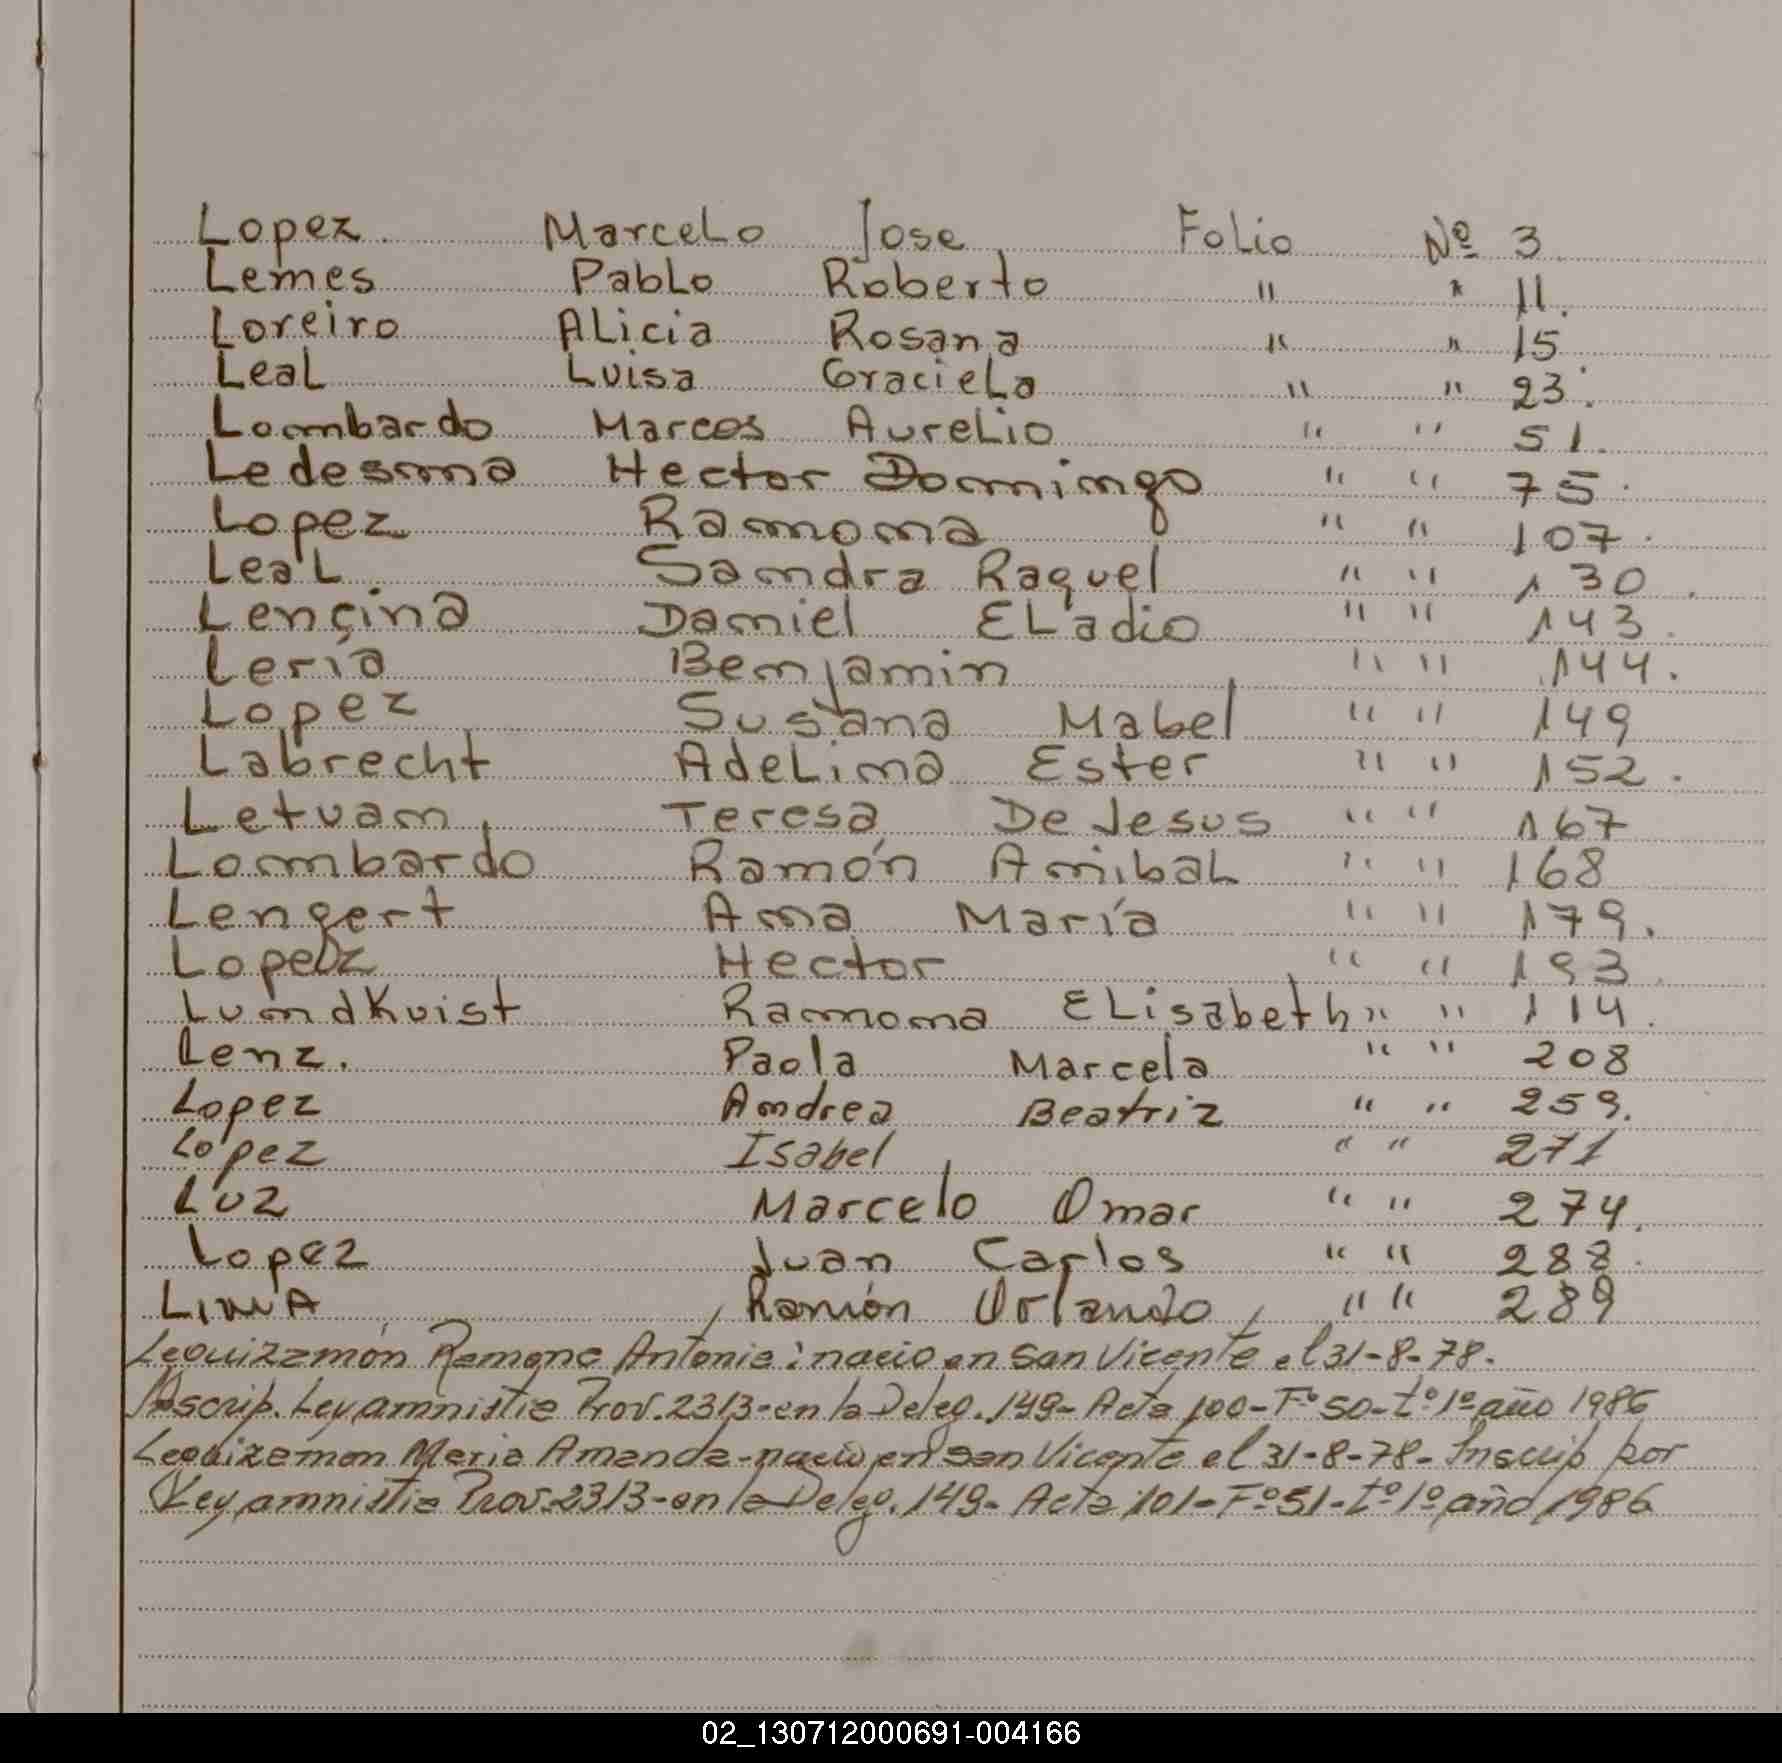 Lopez Marcelo Jose Folio Nº 3
Lemes Pablo Roberto " " 11.
Loreiro Alicia Rosana " " 15
Leal Luisa Graciela " " 23.
Lombardo Marcos Aurelio " " 51.
Ledesma Hector Domingo " " 75.
Lopez Ramona " " 107.
Leal Sandra Raquel " " 130.
Lençina Daniel Eladio " " 143.
Leria Benjamin " " 144.
Lopez Susana Mabel " " 149
Labrecht Adelina Ester " " 152.
Letvam Teresa De Jesus " " 167
Lombardo Ramón Anibal " " 168
Lengert Ana María " " 179.
Lopez Hector " " 193.
Lundkvist Ramona Elisabeth " " 114.
Lenz. Paola Marcela " " 208
Lopez Andrea Beatriz " " 259.
Lopez Isabel " " 271
Luz Marcelo Omar " " 274.
Lopez Juan Carlos " " 288.
LIMA, Ramón Orlando, " " 289
Leguizamón Ramona Antonia: nacio en San Vicente el 31-8-78.
Inscrip. Ley amnistia Prov. 2313-en la Deleg. 149- Acta 100-Fº 50-tº 1º año 1986
Leguizamon Maria Amanda-nacio en San Vicente el 31-8-78- Inscrip por
Ley amnistia Prov. 2313-en la Deleg. 149- Acta 101-Fº 51-tº 1º año 1986
02_130712000691-004166